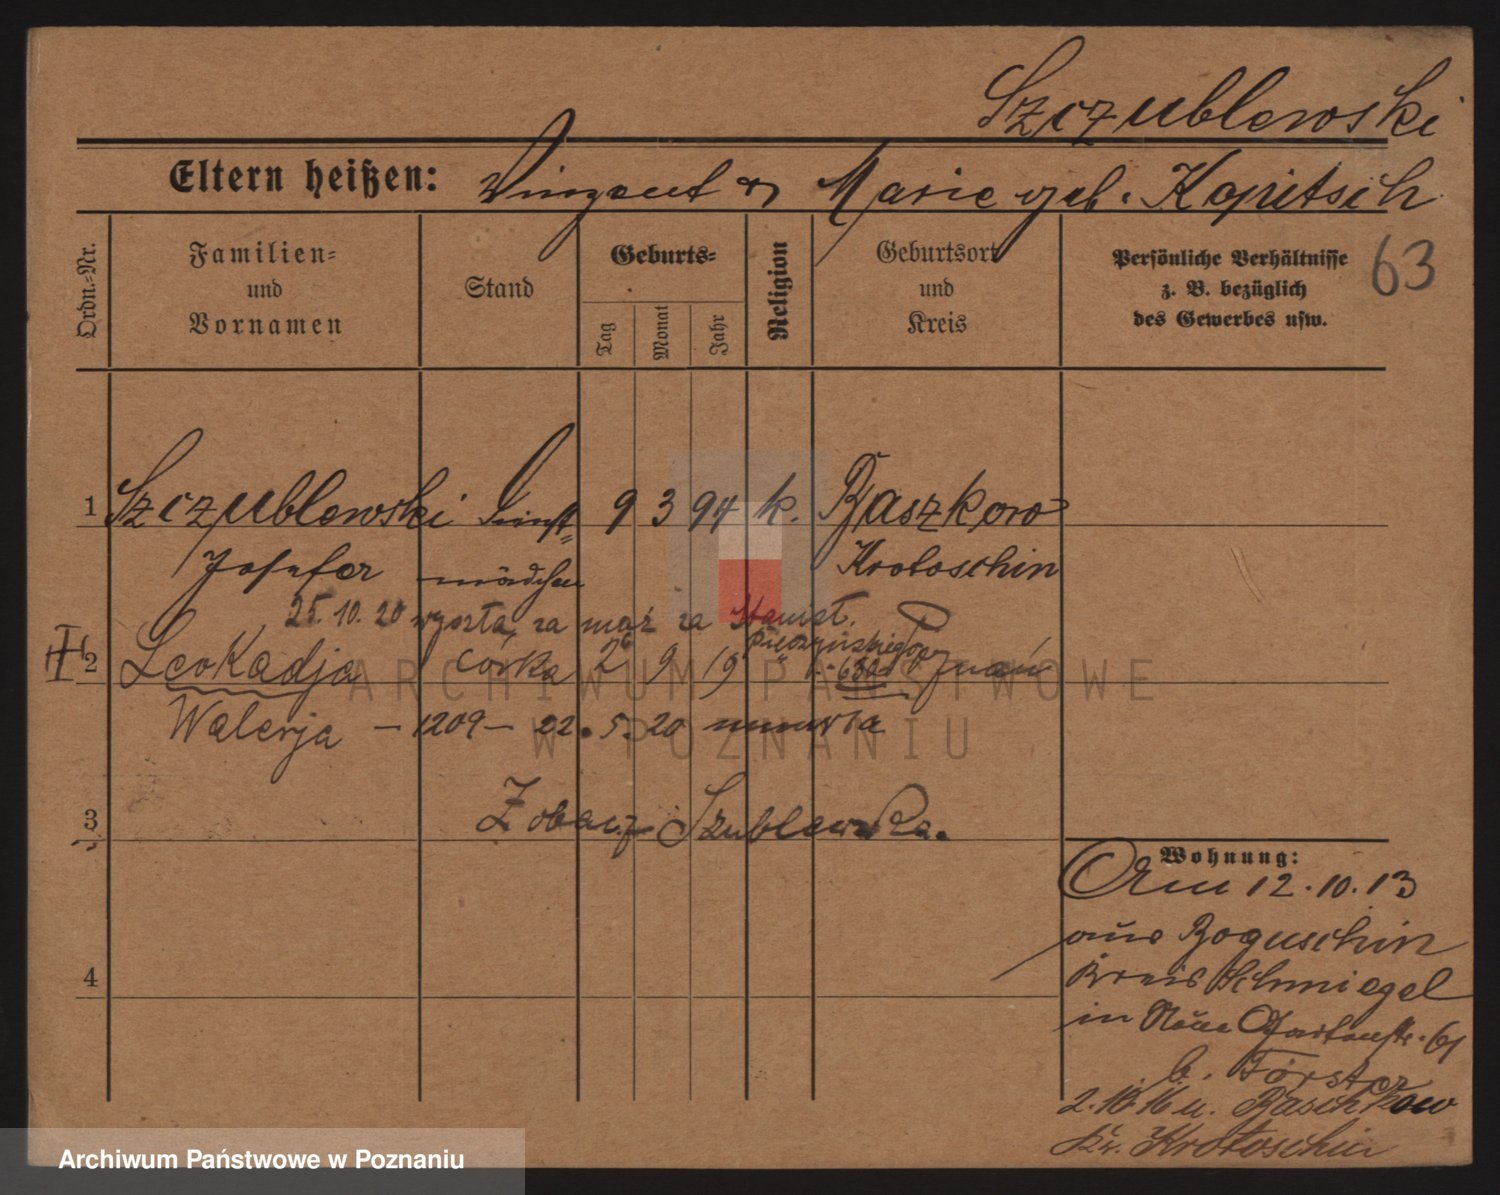 Szczublewski
Eltern heißen: Vinzent & Marie geb. Kopitsch
Ordn.-Nr.
Familien-
und
Vornamen
Stand
Geburts-
Tag
Monat
Jahr
Religion
Geburtsort
und
Kreis
Persönliche Verhältnisse
z. B. bezüglich
des Gewerbes usw.
63
1 Szczublewski Dienst= 9 3 94 k. Baszkow
Josefa mädchen Krotoschin
25.10.20 wyszła za mąż za Stanisł.
2 Leokadja córka 26 9 19 Poznań
Walerja – 1209 – 22.5.20 umarła
3 Zobacz Szublewska.
4
Wohnung:
Am 12.10.13
aus Boguschin
Kreis Schmiegel
in Neue Gartenstr. 61
b. Förster
2.10.16 u. Baschkow
Kr. Krotoschin
ARCHIWUM PAŃSTWOWE
W POZNANIU
Archiwum Państwowe w Poznaniu